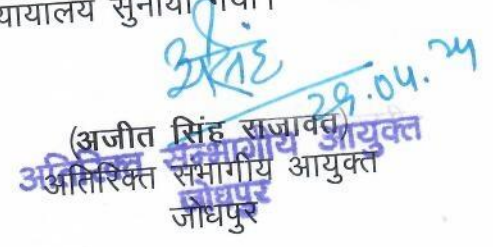 यायालय सुनाया गया।
29.04.24
(अजीत सिंह राजावत)
अतिरिक्त संभागीय आयुक्त
अतिरिक्त संभागीय आयुक्त
जोधपुर
जोधपुर